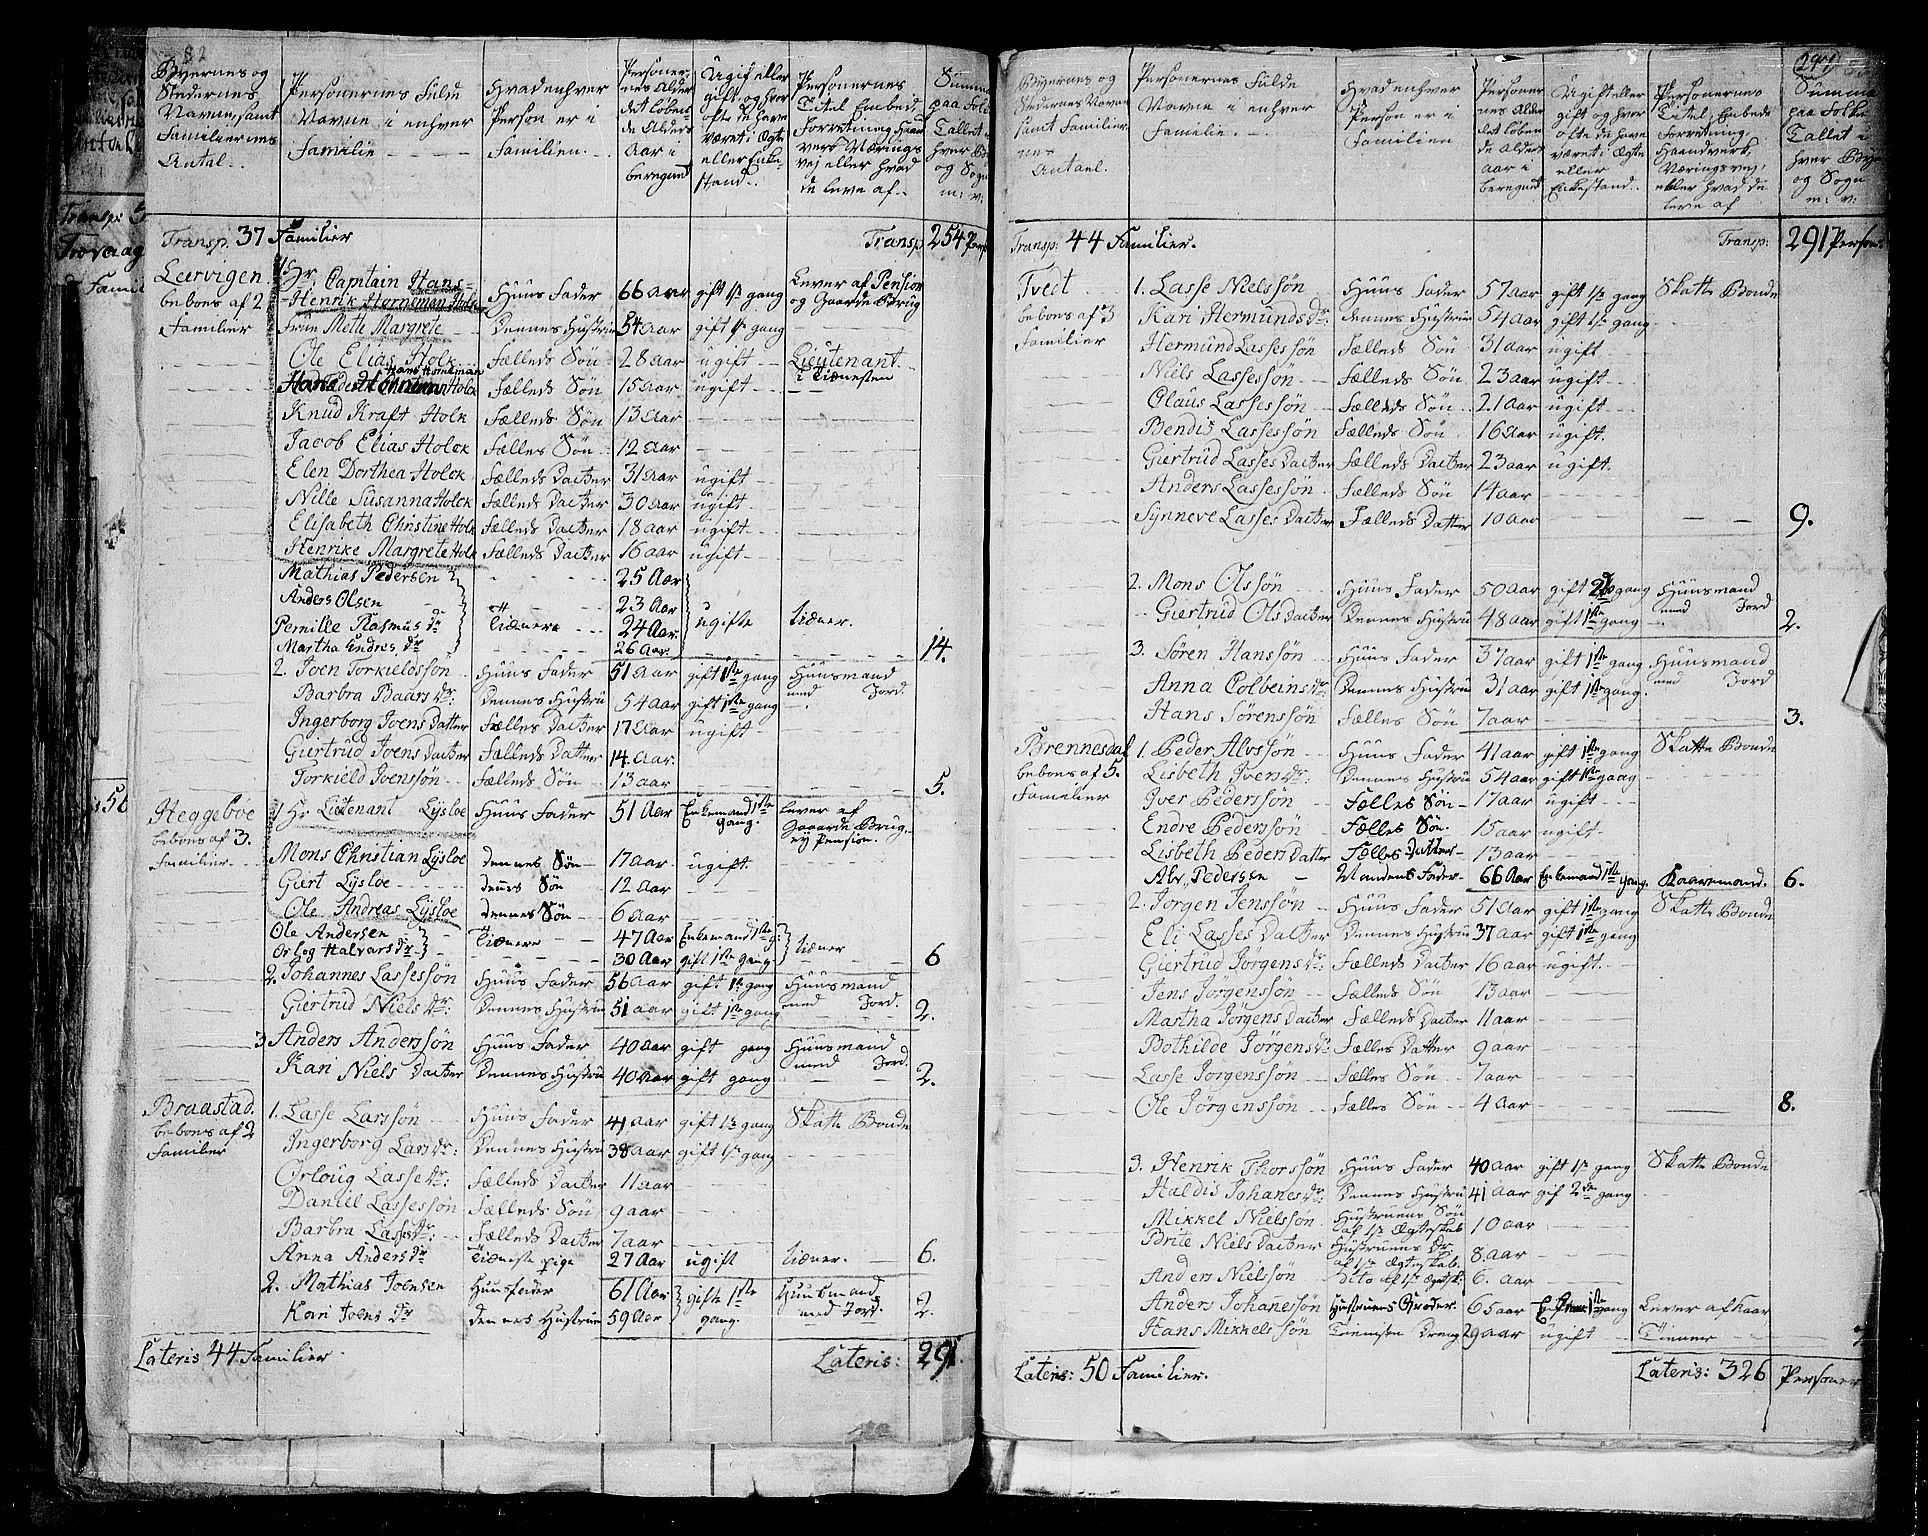 82
Byernes og Stedernes Navne, samt Familiernes Antal.
Personernes Fulde Navne i enhver Familie
Hvad enhver Person er i Familien.
Personernes Alder det løbende Alders Aar i beregned
Ugift eller gift og hvor ofte de have været i Ægte eller Enkestand.
Personernes Titel Embed, Forretning Haandverk Nærings vej eller hvad de leve af.
Summa paa Folke Tallet i hver By og Sogn m: v:
Transp. 37 Familier Transp 254 Pers
Leervigen beboes af 2 Familier
1 Hr. Capitain Hans Henrik Horneman Holck Huus Fader 66 aar gift 1ste gang Lever af Pension og Gaards Brug
Frue Mette Margrete Dennes Hustrue 54 aar gift 1ste gang
Ole Elias Holk Fælleds Søn 28 aar ugift Lieutenant i Tiænesten
Hans Horneman Holck Fælleds Søn 15 aar ugift
Knud Kraft Holk Fælleds Søn 13 aar
Jacob Elias Holck Fælles Søn 12 aar
Elen Dorthea Holck Fælleds Datter 31 aar ugift
Nille Susanna Holck Fælleds Datter 30 aar ugift
Elisabeth Christine Holk Fælleds Datter 18 aar ugift
Henrike Margrete Holk Fælleds Datter 16 aar ugift
Mathias Pedersen 25 Aar
Anders Olsen 23 Aar
Pernille Rasmus dr Tiænere 24 Aar ugifte tiæner.
Martha Endres dr 26 Aar 14.
2. Joen Torkieldssøn Huus Fader 51 aar gift 1ste gang Huusmand med Jord.
Barbra Baars dr: Dennes Hustru 54 aar gift 1ste gang
Ingerborg Joens Datter Fælles Datter 17 aar ugift
Giertrud Joens Datter Fælleds Datter 14 aar.
Torkield Joenssøn Fælleds Søn 13 aar 5.
Heggebøe beboes af 3. Familier
1 Hr Lieutenant Lysloe Huus Fader 51 Aar Enkemand 1ste gang. lever af Gaards Brug, og Pension.
Mons Christian Lysloe Dennes Søn 17 aar ugift
Giert Lysloe Dennes Søn 12 Aar
Ole Andreas Lysloe Dennes Søn 6 aar
Ole Andersen Tiænere 47 Aar Enkemand 1ste g: tiæner
Orlog Halvars dr 30 Aar gift 1ste gang 6
2. Johannes Lassessøn Huus Fader 56 aar gift 1te gang Huusmand med Jord.
Giertrud Niels dr: Dennes Hustrue 51 aar gift 1ste gang 2.
3 Anders Anderssøn Huus Fader 40 aar gift gang Huusmand med Jord.
Kari Niels Datter Dennes Hustrue 40 aar gift gang 2.
Braastad. beboes af 2 Familier
1. Lasse Larssøn Huus Fader 41 aar gift 1te gang Skatte Bonde
Ingerborg Lars dr: Dennes Hustrue 38 aar gift 1ste gang
Orloug Lasse dr: Fælleds Datter 11 aar
Daniel Lassessøn Fælleds Søn 9 aar
Barbra Lasse dr: Fælleds Datter 7 aar
Anna Anders dr Tiæneste pige 27 Aar ugift tiæner. 6.
2. Mathias Joensen Huusfader 61 Aar gifte 1ste gang. Huusmand med Jord.
Kari Joens dr dennes Hustrue 59 Aar 2.
Lateris 44 Familier Lateris: 291.
291
Byernes og Stedernes Navne samt Familiernes Antael.
Personernes Fulde Navne i enhver Familie.
Hvad enhver Person er i Familien
Personernes Alder det løbende Alders aar i beregned
Ugift eller gift og hvor ofte de have været i Ægte eller Enkestand.
Personernes Titel, Embede Forretning. Haandverk, Nærings vej, eller hvad de leve af
Summa paa Folke Tallet i hver Bye og Sogn m: v:
Transp: 44 Familier. Transp: 291 Person:
Tvedt beboes af 3 Familier
1. Lasse Nielssøn Huus Fader 57 aar gift 1ste gang Skatte Bonde
Kari Hermunds dr: Dennes Hustrue 54 aar gift 1ste gang
Hermund Lassessøn Fælleds Søn 31 aar ugift
Niels Lassessøn Fælleds Søn 23 aar ugift
Olaus Lassessøn Fælleds Søn 21 aar ugift
Bendis Lassessøn Fælleds Søn 16 aar ugift.
Giertrud Lasses Datter Fælleds Datter 23 aar ugift.
Anders Lassessøn Fælleds Søn 14 aar
Synneve Lasses Datter Fælleds Datter 10 aar 9.
2. Mons Olssøn Huus Fader 50 aar gift gang Huusmand med Jord
Giertrud Ols Datter Dennes Hustru 48 aar gift 1ste gang 2.
3. Søren Hanssøn Huus Fader 37 aar gift 1ste gang Huusmand med Jord
Anna Colbeins dr: Dennes Hustru 31 aar gift 1ste gang.
Hans Sørenssøn Fælles Søn 7 aar 3.
Brennesdal beboes af 5. Familier
1. Peder Alvssøn Huus Fader 41 aar gift 1ste gang Skatte Bonde
Lisbeth Iven dr. Dennes Hustru 54 aar gift 1ste gang
Iver Pederssøn Fælles Søn 17 aar ugift
Endre Pederssøn Fælles Søn. 15 aar ugift
Lisbeth Peders Datter Fælles Datter 13 aar
Alv Pedersen Mandens Fader 66 Aar Enkemand 1ste gang. Kaaremand. 6.
2. Jørgen Jenssøn Huus Fader 51 aar gift 1ste gang Skatte Bonde
Eli Lasses Datter Dennes Hustrue 37 aar gift 1ste gang
Giertrud Jørgens dr: Fælleds Datter 16 aar ugift.
Jens Jørgenssøn Fælleds Søn 13 aar
Martha Jørgens Datter Fælleds Datter 11 aar
Bothilde Jørgens dr Fælles Datter 9 aar
Lasse Jørgenssøn Fælles Søn 7 aar
Ole Jørgenssøn Fælles Søn 4 aar 8.
3. Henrik Thorssøn Huus Fader 40 aar gift 1ste gang Skatte Bonde
Haldis Johanes dr: Dennes Hustru 41 aar gif 2den gang
Mikkel Nielssøn Hustruens Søn af 1ste Ægteskab 10 aar
Brite Niels Datter Hustruens Dr af 1ste Ægteskab. 8 aar
Anders Nielssøn Dito af 1ste Ægtesk: 6. aar
Anders Johanessøn Hustruens Broder 65 aar 1ste gang Lever af Kaar
Hans Mikkelssøn Tienisten Dreng 29 aar ugift Tienner 7
Lateris: 50 Familier. Lateris: 326 Personer